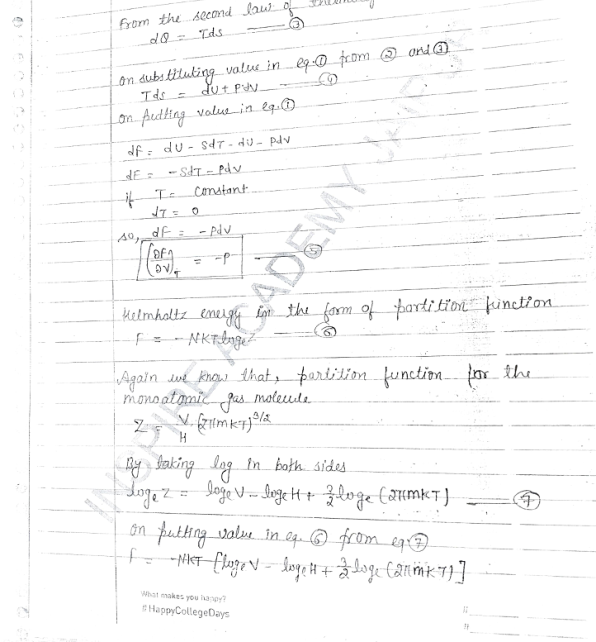 From the second law of
dQ = Tds ——— ③
on substituting value in eq.① from ② and ③
Tds = dU + Pdv ——— ④
on putting value in eq.①
dF = dU - SdT - dU - Pdv
dF = -SdT - Pdv
if T = Constant
dT = 0
so, dF = -Pdv
(∂F/∂V)_T = -P ——— ⑤
Helmholtz energy in the form of partition function
F = -NKT loge Z ——— ⑥
Again we know that, partition function for the
monoatomic gas molecule
Z = V/H (2πmKT)^3/2
By taking log in both sides
loge Z = loge V - loge H + 3/2 loge (2πmKT) ——— ⑦
on putting value in eq. ⑥ from eq ⑦
F = -NKT [loge V - loge H + 3/2 loge (2πmKT)]
INSPIRE ACADEMY
What makes you happy?
#HappyCollegeDays